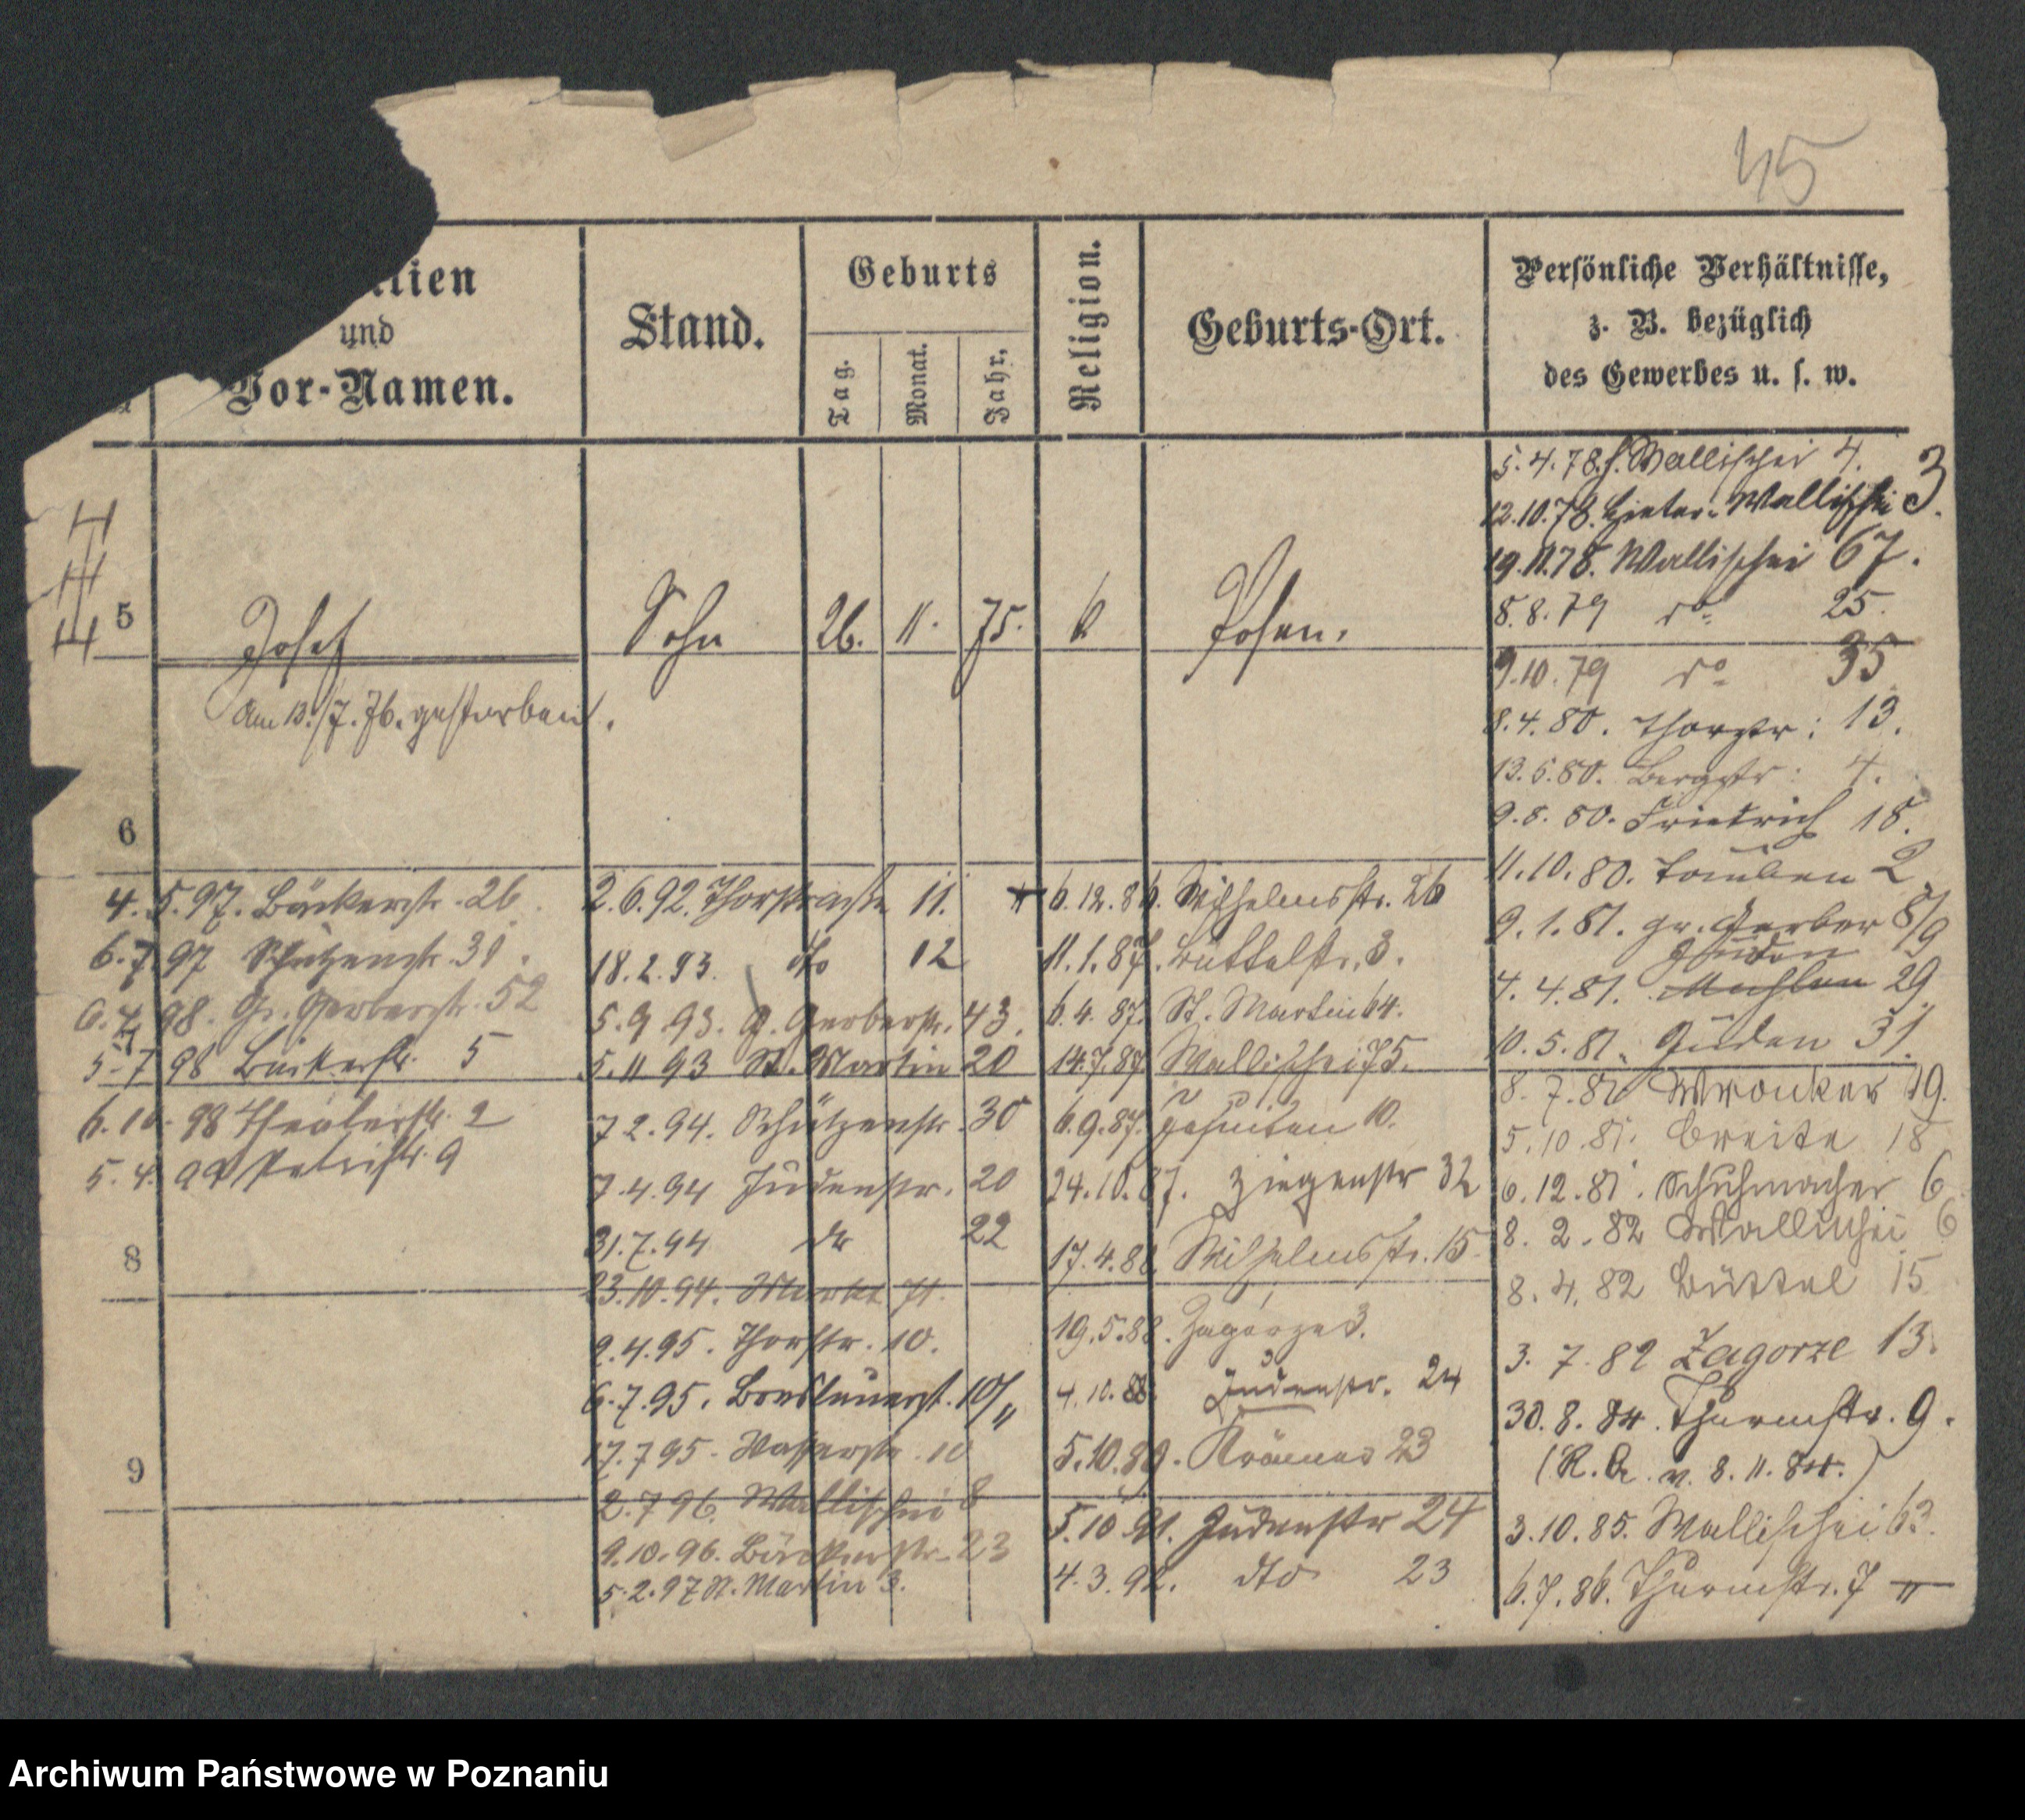 45
lien
und
Vor-Namen.
Stand.
Geburts
Tag.
Monat.
Jahr.
Religion.
Geburts-Ort.
Persönliche Verhältnisse,
z. B. bezüglich
des Gewerbes u. s. w.
5 Josef Sohn 26. 11. 75. k Posen.
Am 13./7. 76. gestorben.
6
8
9
5.4.78. Wallischei 4.
12.10.78. Hinter-Wallischei 3.
19.11.78. Wallischei 67.
8.8.79 do 25.
9.10.79 do 35
8.4.80. Thorstr: 13.
13.5.80. Bergstr: 4.
9.8.80. Friedrich 18.
11.10.80. Tauben 2
9.1.81. gr. Gerber 8/9
Juden
4.4.81. Muhlen 29
10.5.81. Juden 31.
8.7.81 Wronker 19.
5.10.81. Breite 18
6.12.81. Schuhmacher 6
8.2.82 Wallischei 6
8.4.82 Büttel 15
3.7.82 Zagorze 13.
30.8.84. Thurmstr. 9.
(R. v. 8.11.84.)
3.10.85. Wallischei 63.
6.7.86. Thurmstr. 7
6.12.86. Wilhelmsstr. 26
11.1.87. Büttelstr. 3.
6.4.87. St. Martin 64.
14.7.87. Wallischei 75.
6.9.87. Jesuiten 10.
24.10.87. Ziegenstr 32
17.4.88. Wilhelmsstr. 15.
19.5.88. Zagorze 3.
4.10.88. Judenstr. 24
5.10.89. Krämer 23
5.10.91. Judenstr 24
4.3.92. dto 23
2.6.92. Thorstrasse 11.
18.2.93. do 12
5.9.93. G. Gerberstr. 43.
5.11 93 St. Martin 20
7 2.94. Schützenstr. 30
7.4.94 Judenstr. 20
31.7.94 do 22
23.10.94. Markt 71.
2.4.95. Thorstr. 10.
6.7.95. Breslauerst. 10/11
17.7 95. Wasserstr. 10
2.7 96. Wallischei 8
9.10.96. Bäckerstr. 23
5.2.97 St. Martin 3.
4.5.97. Bäckerstr. 26
6.7 97 Schützenstr. 31.
6.4 98. Gr. Gerberstr. 52
5.7 98 Bäckerstr. 5
6.10.98 Theaterstr. 2
5.4. 99 Petristr. 9
Archiwum Państwowe w Poznaniu